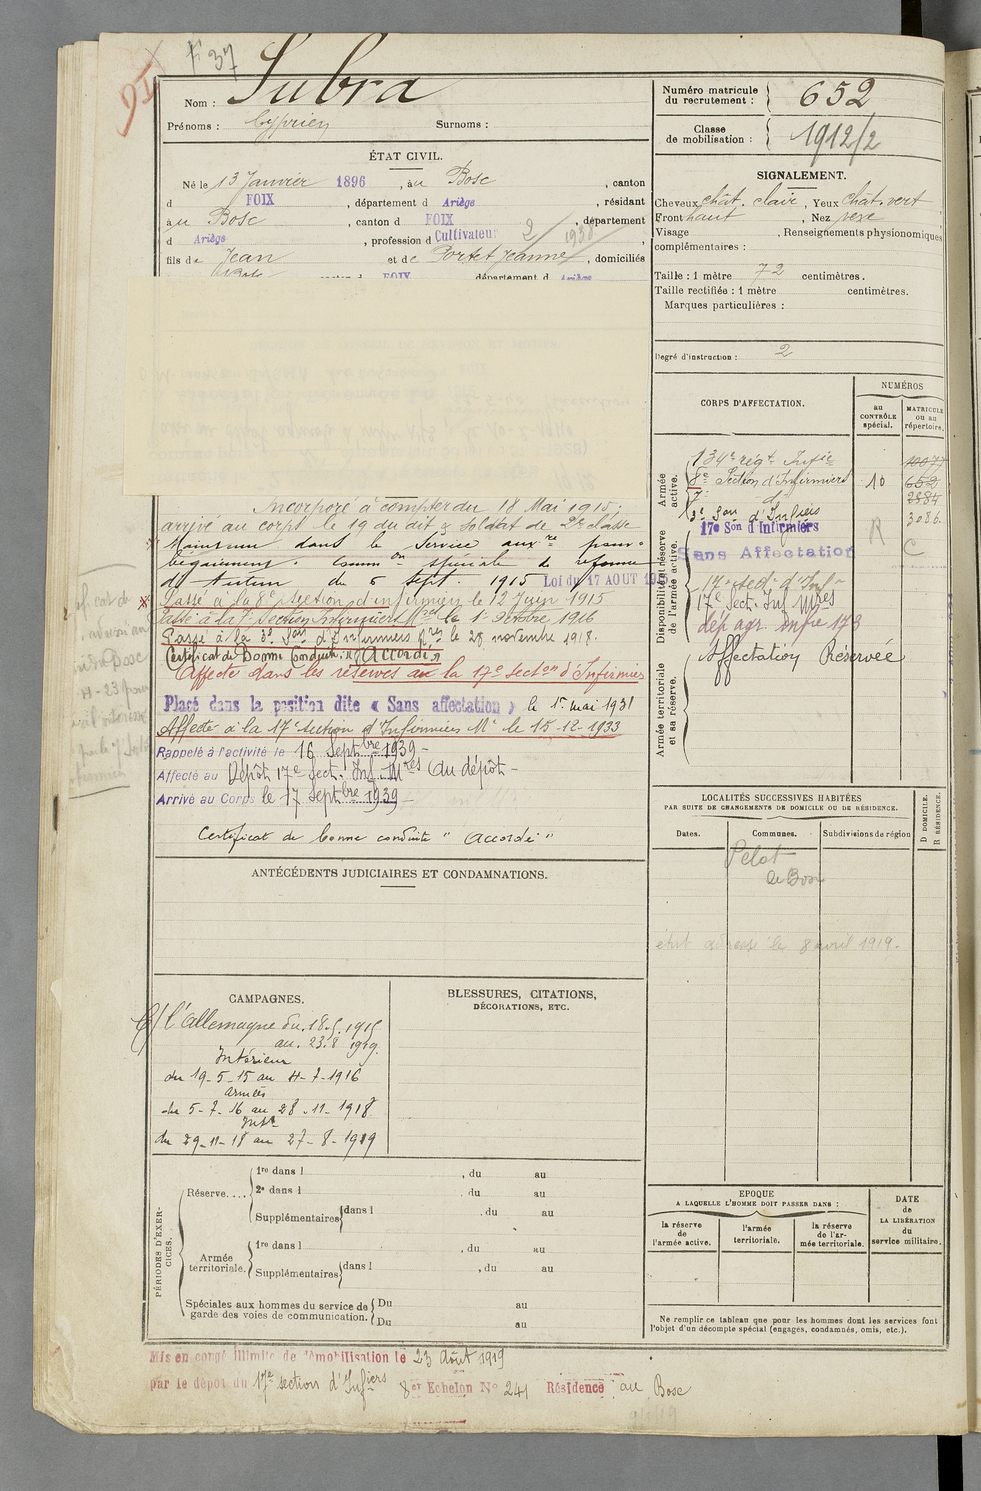 F 37
Nom : Subra
Prénoms : Cyprien Surnoms :
ÉTAT CIVIL.
Né le 13 Janvier 1896, au Bosc, canton
d FOIX, département d Ariège, résidant
au Bosc, canton d FOIX, département
d Ariège, profession d Cultivateur 2/1938
fils de Jean et de Portet Jeanne, domiciliés
FOIX département d Ariège
Numéro matricule du recrutement : 652
Classe de mobilisation : 1912/2
SIGNALEMENT.
Cheveux chât. clair, Yeux chât. vert
Front haut, Nez vexe
Visage , Renseignements physionomiques
complémentaires :
Taille : 1 mètre 72 centimètres.
Taille rectifiée : 1 mètre centimètres.
Marques particulières :
Degré d'instruction : 2
CORPS D'AFFECTATION.
NUMÉROS
au CONTRÔLE spécial.
MATRICULE ou au répertoire.
Armée active.
134e régt Infie
8e Section d'Infirmiers 10 652
7e d° 2884
3e Son d'Infiers 3086
Disponibilité et réserve de l'armée active.
17e Son d'Infirmiers R
Sans Affectation C
17e Sect. d'Inf
17e Sect. Inf Mres
dép agr. Infie 173
Armée territoriale et sa réserve.
Affectation Réservée
Incorporé à compter du 18 Mai 1915;
arrivé au corps le 19 du dit & Soldat de 2e classe
Maintenu dans le Service auxre pour
bégaiement. Comm on spéciale de réforme
de Autun du 6 Sept. 1915 Loi du 17 AOUT
Passé à la 8e Section d'infirmiers le 12 Juin 1915
Passé à la 7e Section Infirmiers Mres le 1er Octobre 1916
Passé à la 3e Son d'Infirmiers Mres le 28 novembre 1918.
Certificat de Bonne Conduite "Accordé"
Affecté dans les réserves au la 17e Section d'Infirmiers
Placé dans la position dite « Sans affectation » le 1er mai 1931
Affecté à la 17e Section d'Infirmiers Mre le 15-12-1933
Rappelé à l'activité le 16 Septbre 1939 -
Affecté au Dépôt 17e Sect. Inf. Mres du dépôt -
Arrivé au Corps le 17 Septbre 1939 -
Certificat de bonne conduite " Accordé "
ANTÉCÉDENTS JUDICIAIRES ET CONDAMNATIONS.
LOCALITÉS SUCCESSIVES HABITÉES
PAR SUITE DE CHANGEMENTS DE DOMICILE OU DE RÉSIDENCE.
D DOMICILE. R RÉSIDENCE.
Dates. Communes. Subdivisions de région
Pelat
le Bosc
8 avril 1919.
CAMPAGNES.
C/ l'Allemagne du 18.5.1915
au. 23.8 1919.
Intérieur
du 19-5-15 au 4-7-1916
Armées
du 5-7-16 au 28-11-1918
Intr
du 29-11-18 au 27-8-1919
BLESSURES, CITATIONS,
DÉCORATIONS, ETC.
PÉRIODES D'EXERCICES.
Réserve....
1re dans l , du au
2e dans l , du au
Supplémentaires dans l , du au
Armée territoriale.
1re dans l , du au
Supplémentaires dans l , du au
Spéciales aux hommes du service de garde des voies de communication.
Du au
Du au
EPOQUE
A LAQUELLE L'HOMME DOIT PASSER DANS :
la réserve de l'armée active.
l'armée territoriale.
la réserve de l'armée territoriale.
DATE de LA LIBÉRATION du service militaire.
Ne remplir ce tableau que pour les hommes dont les services font
l'objet d'un décompte spécial (engagés, condamnés, omis, etc.).
Mis en congé illimité de démobilisation le 23 Août 1919
par le dépôt du 17e section d'Infiers 8er Echelon N° 241 Résidence au Bosc